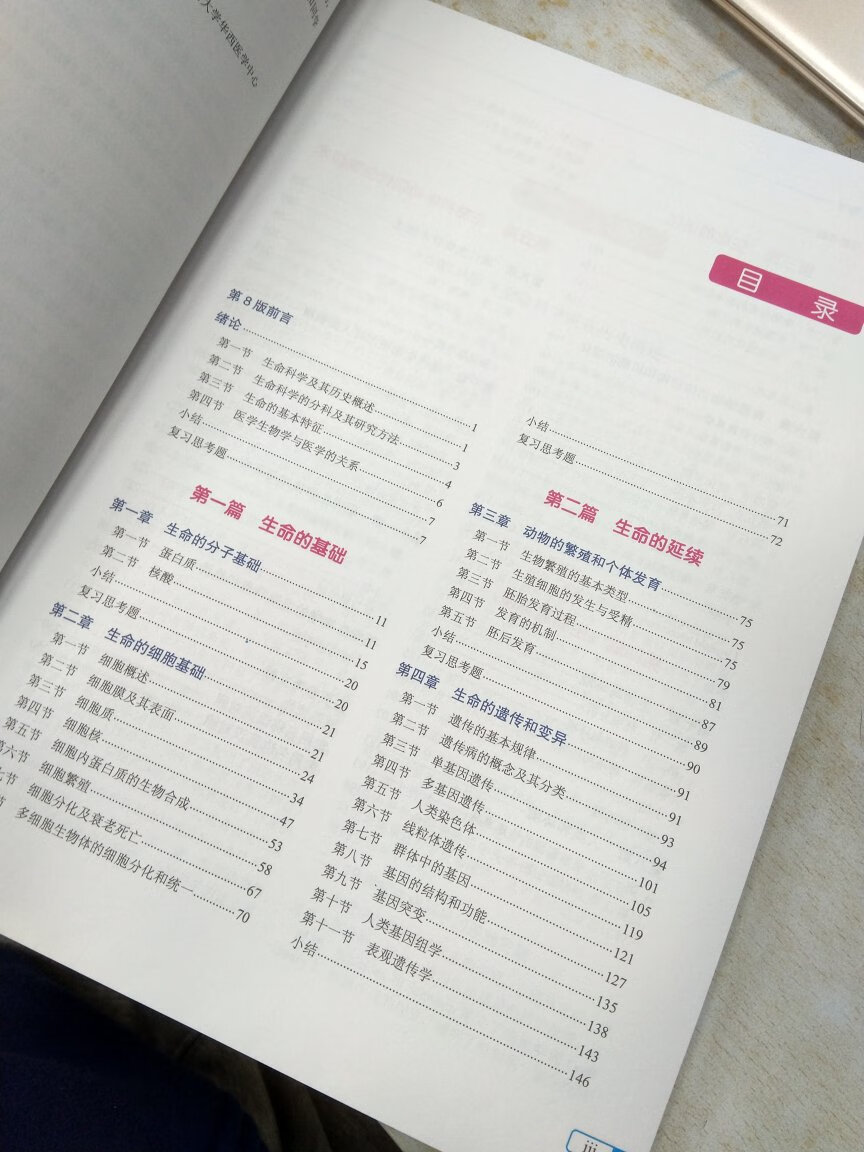 大学华西医学中心
目 录
第8版前言
绪论……1
第一节 生命科学及其历史概述……1
第二节 生命科学的分科及其研究方法……3
第三节 生命的基本特征……4
第四节 医学生物学与医学的关系……6
小结……7
复习思考题……7
第一篇 生命的基础
第一章 生命的分子基础……11
第一节 蛋白质……11
第二节 核酸……15
小结……20
复习思考题……20
第二章 生命的细胞基础……21
第一节 细胞概述……21
第二节 细胞膜及其表面……24
第三节 细胞质……34
第四节 细胞核……47
第五节 细胞内蛋白质的生物合成……53
第六节 细胞繁殖……58
七节 细胞分化及衰老死亡……67
节 多细胞生物体的细胞分化和统一……70
小结……71
复习思考题……72
第二篇 生命的延续
第三章 动物的繁殖和个体发育……75
第一节 生物繁殖的基本类型……75
第二节 生殖细胞的发生与受精……75
第三节 胚胎发育过程……79
第四节 发育的机制……81
第五节 胚后发育……87
小结……89
复习思考题……90
第四章 生命的遗传和变异……91
第一节 遗传的基本规律……91
第二节 遗传病的概念及其分类……93
第三节 单基因遗传……94
第四节 多基因遗传……101
第五节 人类染色体……105
第六节 线粒体遗传……119
第七节 群体中的基因……121
第八节 基因的结构和功能……127
第九节 基因突变……135
第十节 人类基因组学……138
第十一节 表观遗传学……143
小结……146
iii